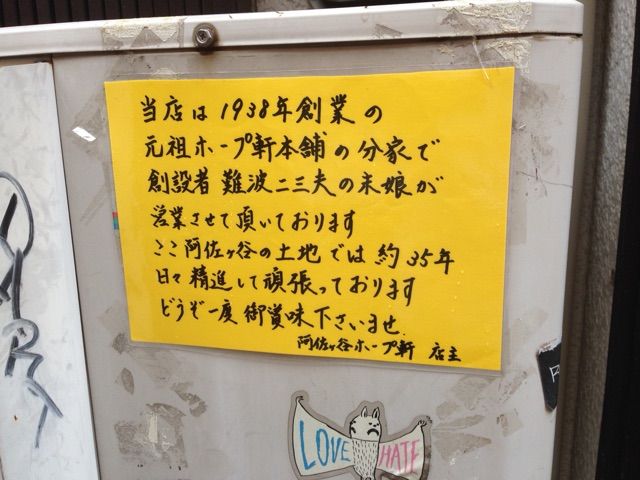 当店は1938年創業の
元祖ホープ軒本舗の分家で
創設者 難波二三夫の末娘が
営業させて頂いております
ここ阿佐ヶ谷の土地では約35年
日々精進して頑張っております
どうぞ一度御賞味下さいませ
阿佐ヶ谷ホープ軒 店主
LOVE HATE